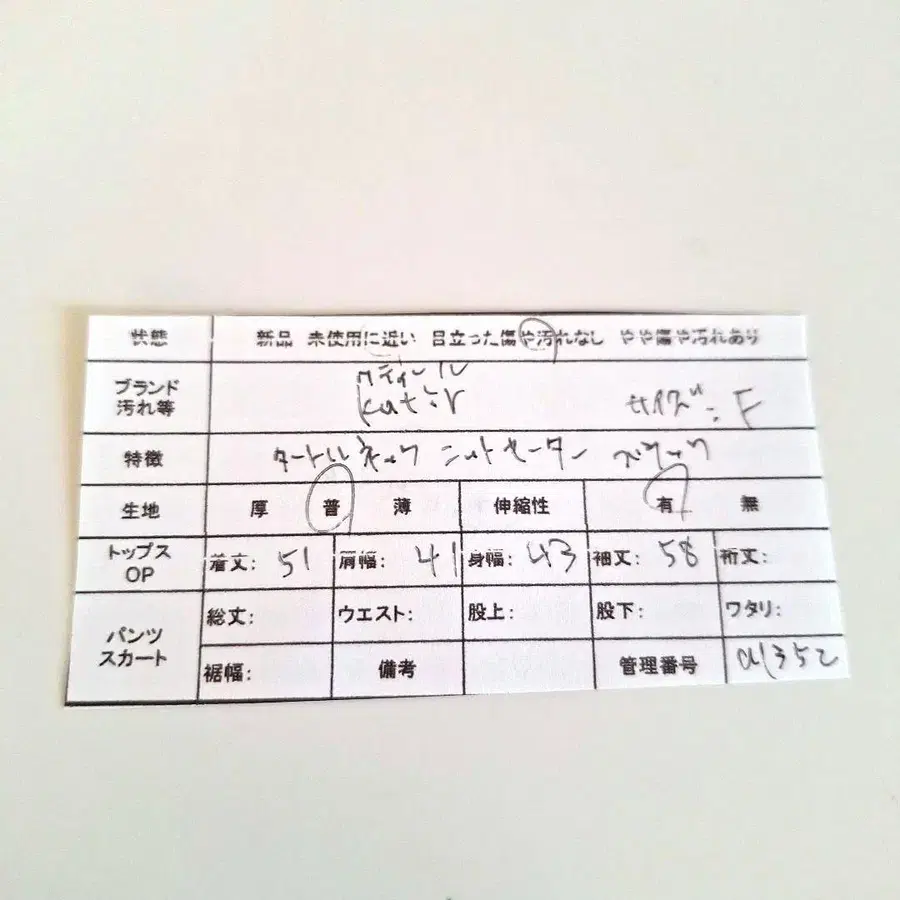 状態 新品 未使用に近い 目立った傷や汚れなし やや傷や汚れあり
ブランド 汚れ等 クティール
katir サイズ:F
特徴 タートルネック ニットセーター ベーシック
生地 厚 普 薄 伸縮性 有 無
トップス OP 着丈: 51 肩幅: 41 身幅: 43 袖丈: 58 裄丈:
パンツ スカート 総丈: ウエスト: 股上: 股下: ワタリ:
裾幅: 備考 管理番号